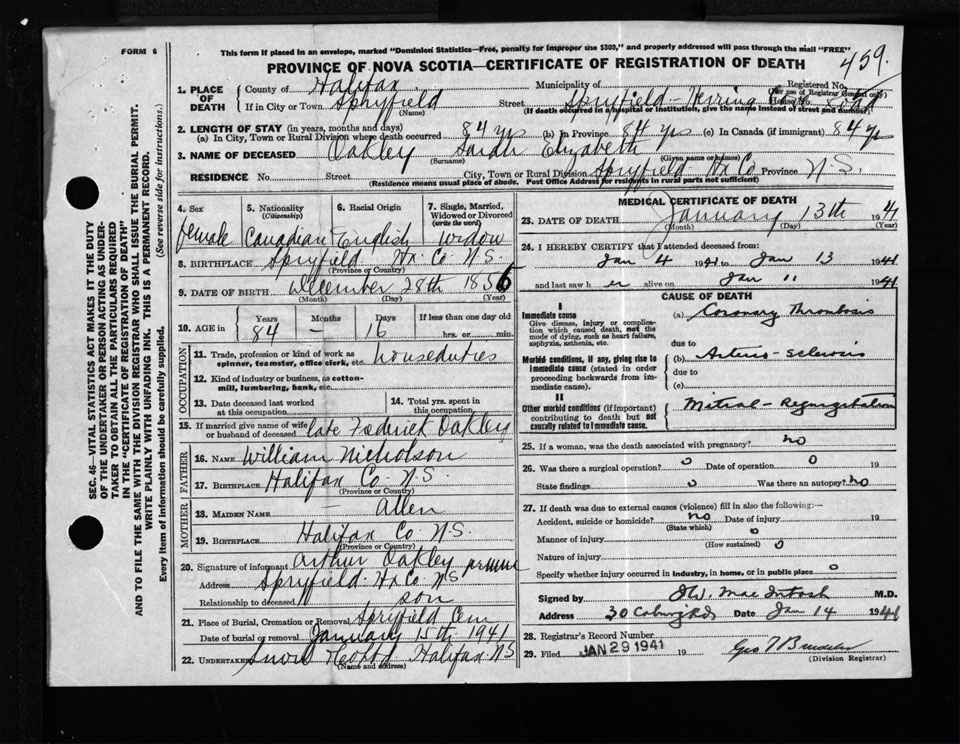 FORM 6
This form if placed in an envelope, marked "Dominion Statistics—Free, penalty for improper use $300," and properly addressed will pass through the mail "FREE"
PROVINCE OF NOVA SCOTIA—CERTIFICATE OF REGISTRATION OF DEATH
459.
Registered No.
(For use of Registrar General only)
1. PLACE OF DEATH
County of Halifax Municipality of
If in City or Town Spryfield Street Spryfield - Herring Road House No.
(Name) (If death occurred in a hospital or institution, give the name instead of street and number)
2. LENGTH OF STAY (in years, months and days)
(a) In City, Town or Rural Division where death occurred 84 yrs (b) In Province 84 yrs (c) In Canada (if immigrant) 84 yrs
3. NAME OF DECEASED Oakley Sarah Elizabeth
(Surname) (Given name or names)
RESIDENCE No. Street City, Town or Rural Division Spryfield Hx Co Province N.S.
(Residence means usual place of abode. Post Office Address for residents in rural parts not sufficient)
4. Sex
female
5. Nationality
(Citizenship)
Canadian
6. Racial Origin
English
7. Single, Married, Widowed or Divorced
(write the word)
Widow
8. BIRTHPLACE Spryfield Hx Co. N.S.
(Province or Country)
9. DATE OF BIRTH December 28th 1856
(Month) (Day) (Year)
10. AGE in
Years Months Days If less than one day old
84 — 16 hrs. or min.
OCCUPATION
11. Trade, profession or kind of work as spinner, teamster, office clerk, etc. houseduties
12. Kind of industry or business, as cotton-mill, lumbering, bank, etc.
13. Date deceased last worked at this occupation
14. Total yrs. spent in this occupation
15. If married give name of wife or husband of deceased late Frederick Oakley
FATHER
16. NAME William Nicholson
17. BIRTHPLACE Halifax Co. N.S.
(Province or Country)
MOTHER
18. MAIDEN NAME — Allen
19. BIRTHPLACE Halifax Co N.S.
(Province or Country)
20. Signature of informant Arthur Oakley
Address Spryfield Hx Co. NS
Relationship to deceased son
21. Place of Burial, Cremation or Removal Spryfield Cem
Date of burial or removal January 15th 1941
22. UNDERTAKER Snow & Co Ltd Halifax NS
(Name and address)
MEDICAL CERTIFICATE OF DEATH
23. DATE OF DEATH January 13th 1941
(Month) (Day) (Year)
24. I HEREBY CERTIFY that I attended deceased from:
Jan 4 1941 to Jan 13 1941
and last saw her alive on Jan 11 1941
CAUSE OF DEATH
I
Immediate cause
Give disease, injury or complication which caused death, not the mode of dying, such as heart failure, asphyxia, asthenia, etc.
(a) Coronary Thrombosis
due to
Morbid conditions, if any, giving rise to immediate cause (stated in order proceeding backwards from immediate cause).
(b) Arterio-sclerosis
due to
(c)
II
Other morbid conditions (if important) contributing to death but not causally related to immediate cause.
Mitral - Regurgitation
25. If a woman, was the death associated with pregnancy? no
26. Was there a surgical operation? o Date of operation o 19
State findings o Was there an autopsy? no
27. If death was due to external causes (violence) fill in also the following:—
Accident, suicide or homicide? no Date of injury 19
(State which)
Manner of injury o
(How sustained) o
Nature of injury
Specify whether injury occurred in industry, in home, or in public place o
Signed by W. MacIntosh M.D.
Address 30 Coburg Rd. Date Jan 14 1941
28. Registrar's Record Number
29. Filed JAN 29 1941 19
(Division Registrar)
SEC. 46—VITAL STATISTICS ACT MAKES IT THE DUTY
OF THE UNDERTAKER OR PERSON ACTING AS UNDER-
TAKER TO OBTAIN ALL THE PARTICULARS REQUIRED
IN THE "CERTIFICATE OF REGISTRATION OF DEATH"
AND TO FILE THE SAME WITH THE DIVISION REGISTRAR WHO SHALL ISSUE THE BURIAL PERMIT.
WRITE PLAINLY WITH UNFADING INK. THIS IS A PERMANENT RECORD.
Every item of information should be carefully supplied. (See reverse side for instructions.)